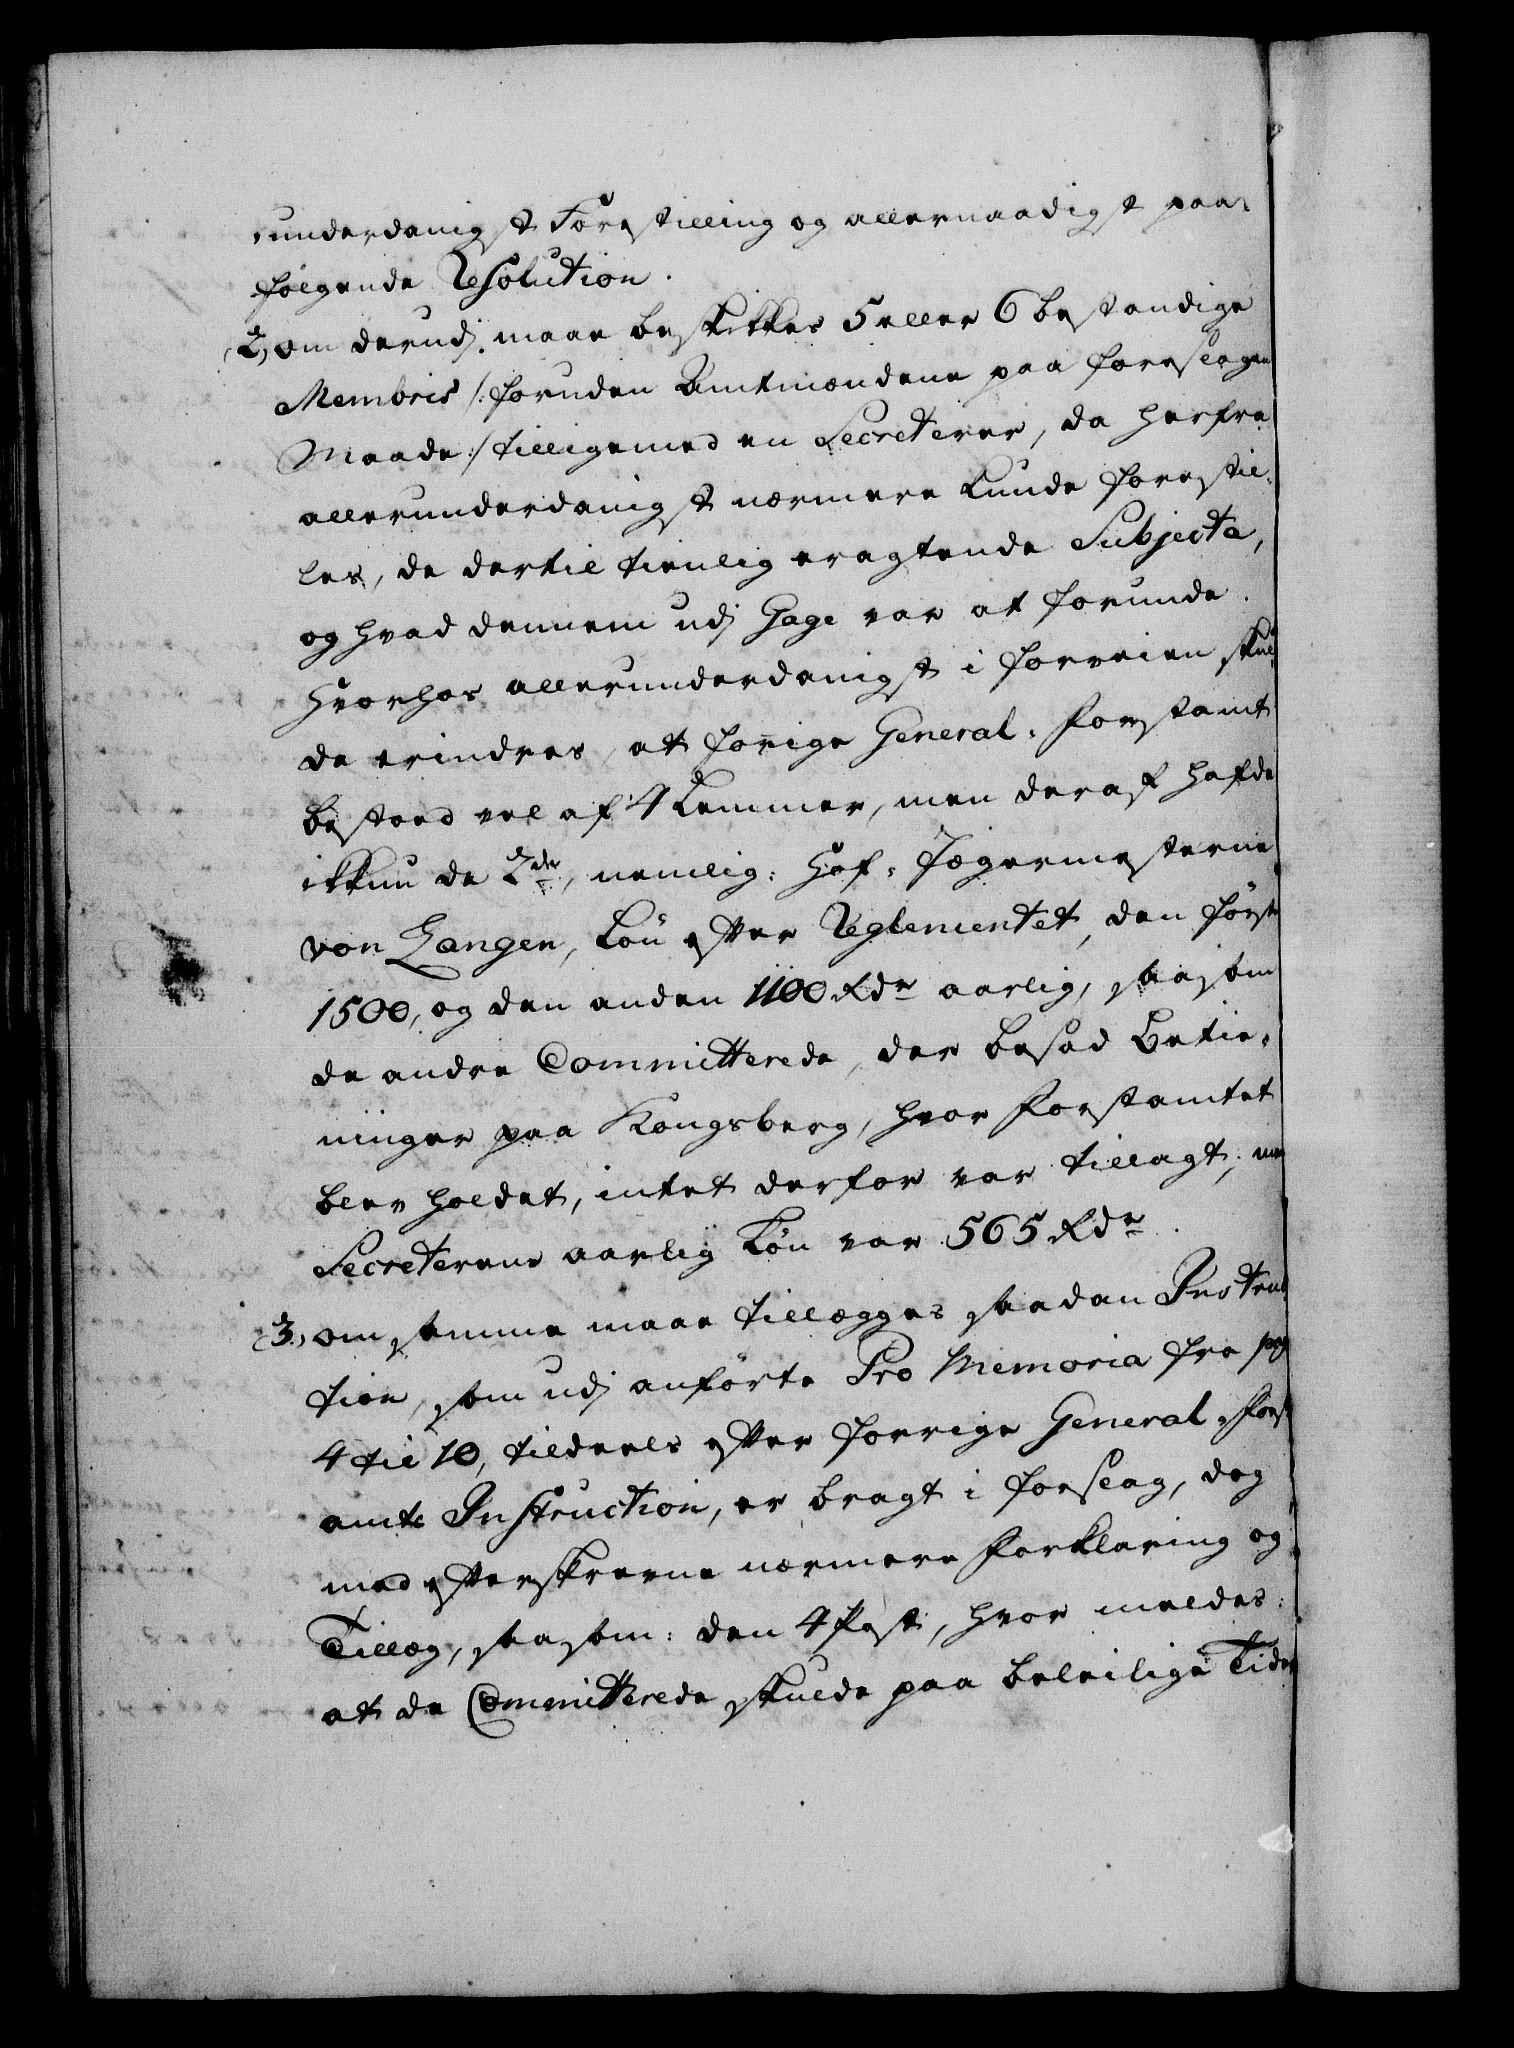 underdanigst Forestilling og allernaadigst paa-
følgende Resolution.
2, om derudj maae beskikkes 5 eller 6 bestandige
Membris /: foruden Amtmændene paa foreslagne
Maade :/ tilligemed en Secreterer, da herfra
allerunderdanigst nærmere kunde forestil-
les, de dertil tienlig eragtende Subjecta,
og hvad dennem udj Gage var at forunde.
Hvorhos allerunderdanigst i forveien skul-
de erindres, at forige General-Forstamt
bestoed vel af 4 Lemmer, men deraf hafde
ikkun de 2de, nemlig: Hof-Jægermesterne
von Langen, Løn efter Reglementet, den første
1500, og den anden 1100 Rdr aarlig, saasom
de andre Committerede, der besad Betie-
ninger paa Kongsberg, hvor Forstamtet
blev holdet, intet derfor var tillagt; men
Secreterens aarlig Løn var 565 Rdr.
3, om samme maae tillægges saadan Instruc-
tion, som udj anførte Pro Memoria fra pag
4 til 10, tildeels efter forrige General-Forst-
amts Instruction, er bragt i forslag, dog
med efterskrevne nærmere Forklaring og
Tillæg, saasom: den 4 Post, hvor meldes:
at de Committerede skulde paa beleilige Tider